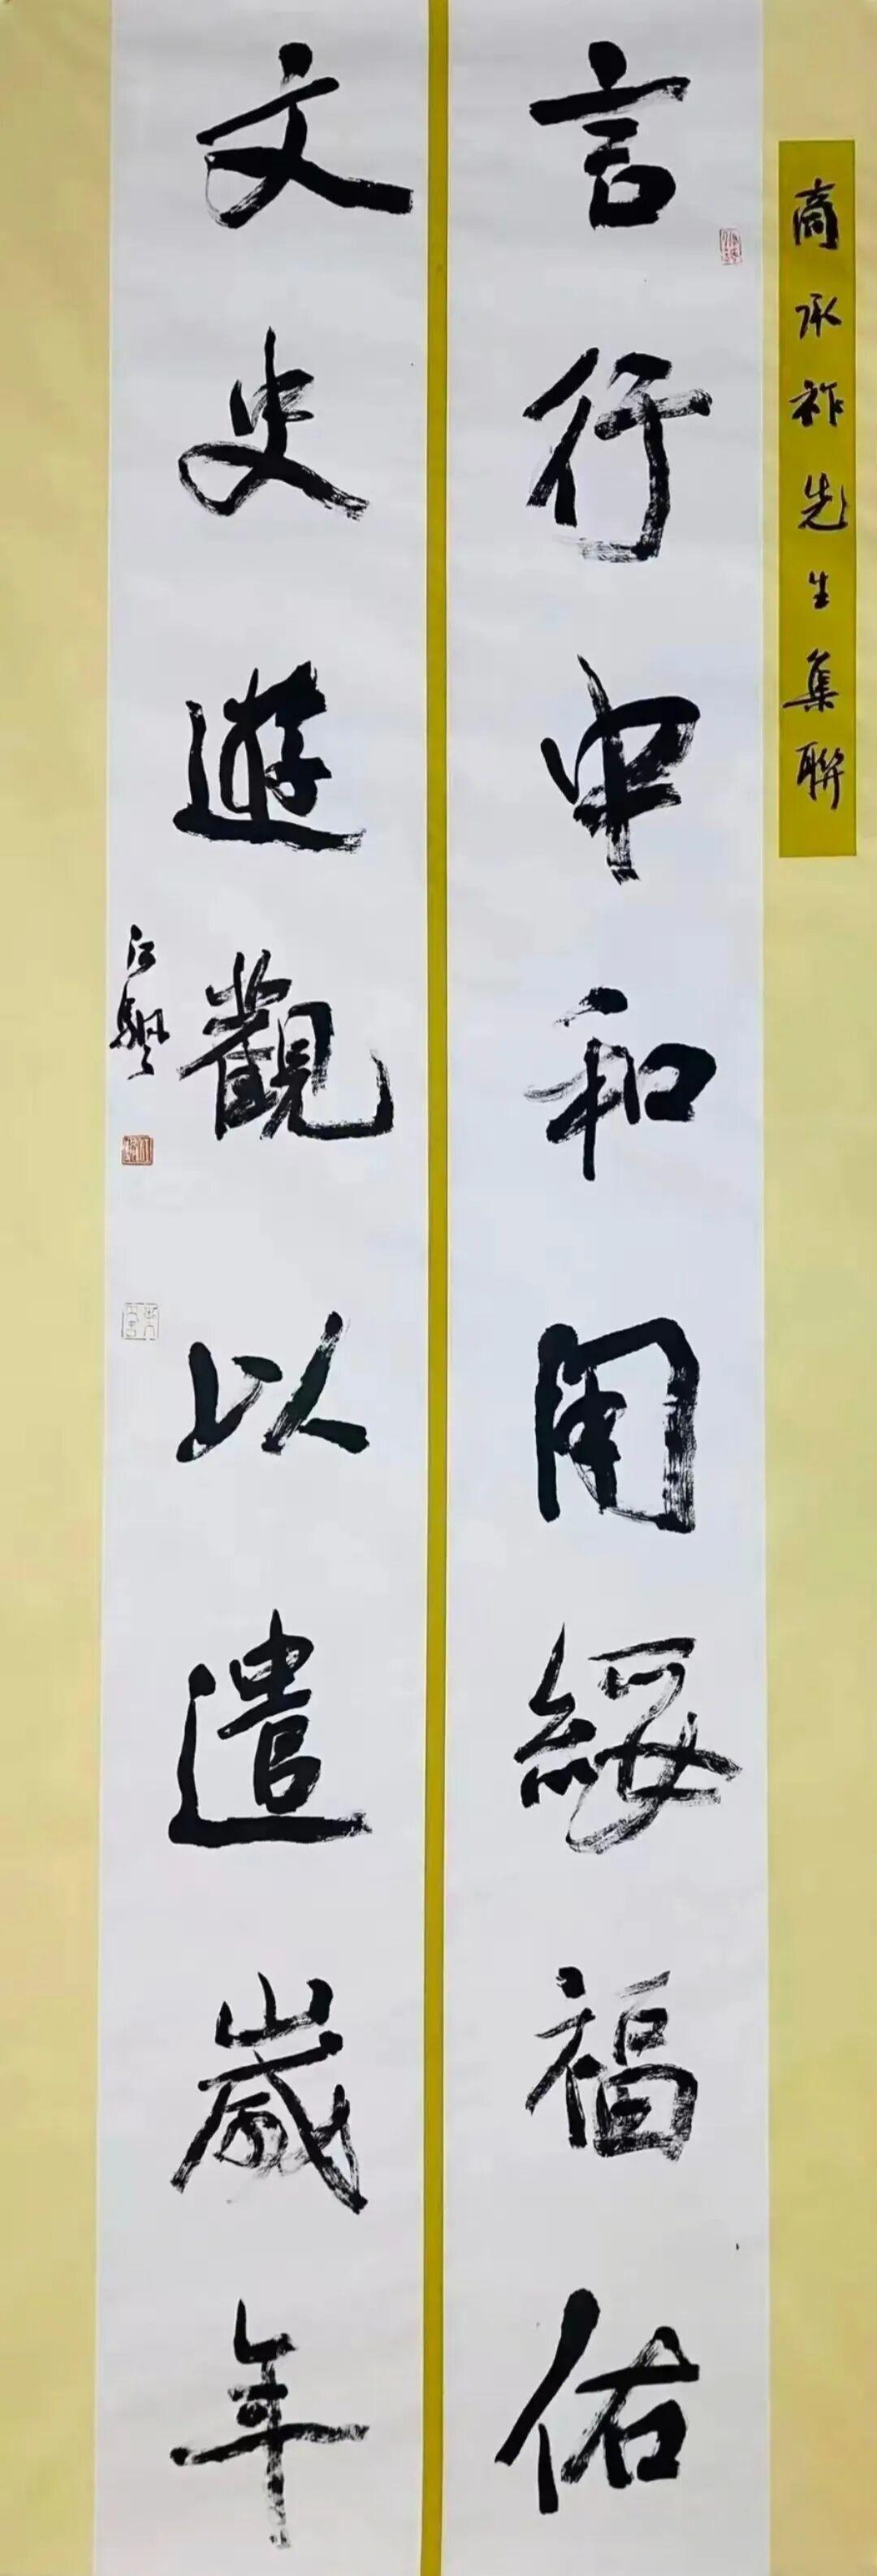 商承祚先生集聯
言行中和用綏福佑
文史遊觀以遣歲年